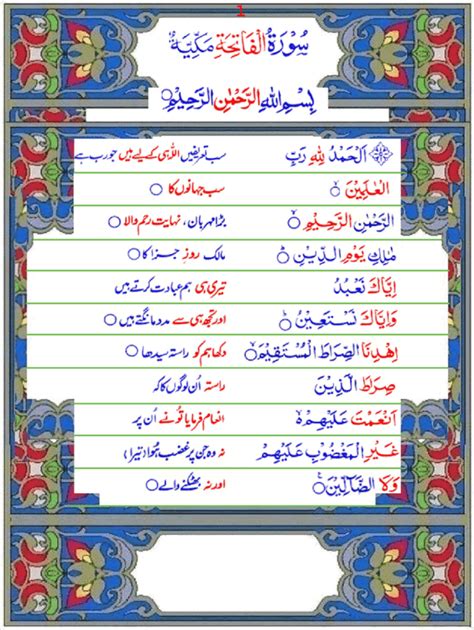 1
سُوْرَةُ الْفَاتِحَةِ مَكِّيَّةٌ
بِسْمِ اللهِ الرَّحْمٰنِ الرَّحِيْمِ○
اَلْحَمْدُ لِلّٰهِ رَبِّ سب تعریفیں اللہ ہی کے لیے ہیں جو رب ہے
الْعٰلَمِيْنَ ○ۙ سب جہانوں کا ○
الرَّحْمٰنِ الرَّحِيْمِ ○ۙ بڑا مہربان، نہایت رحم والا ○
مٰلِكِ يَوْمِ الدِّيْنِ ○ؕ مالک روزِ جزا کا ○
اِيَّاكَ نَعْبُدُ تیری ہی ہم عبادت کرتے ہیں
وَاِيَّاكَ نَسْتَعِيْنُ ○ؕ اور تجھ ہی سے مدد مانگتے ہیں ○
اِهْدِنَا الصِّرَاطَ الْمُسْتَقِيْمَ ○ۙ دکھا ہم کو راستہ سیدھا ○
صِرَاطَ الَّذِيْنَ راستہ اُن لوگوں کا کہ
اَنْعَمْتَ عَلَيْهِمْ ۙ انعام فرمایا تُو نے اُن پر
غَيْرِ الْمَغْضُوْبِ عَلَيْهِمْ نہ وہ جن پر غضب ہُوا (تیرا)
وَلَا الضَّآلِّيْنَ ○ اور نہ بھٹکنے والے ○